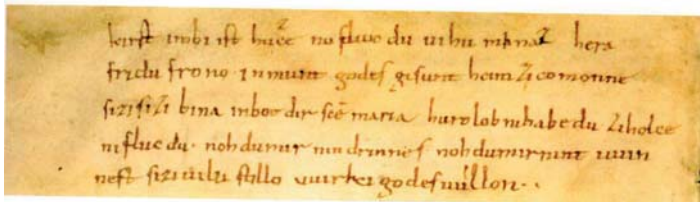 kirst imbi ist hucze nu fluic du uihu minaz hera
fridu frono inmunt godes gisunt heim zicomonne
sizi sizi bina inbot dir sc̄e maria hurolob nihabe du ziholce
nifluc du· nohdumir nindrinnes nohdumirnint uuin
nest sizi uilu stillo uuirki godes uuillon·.